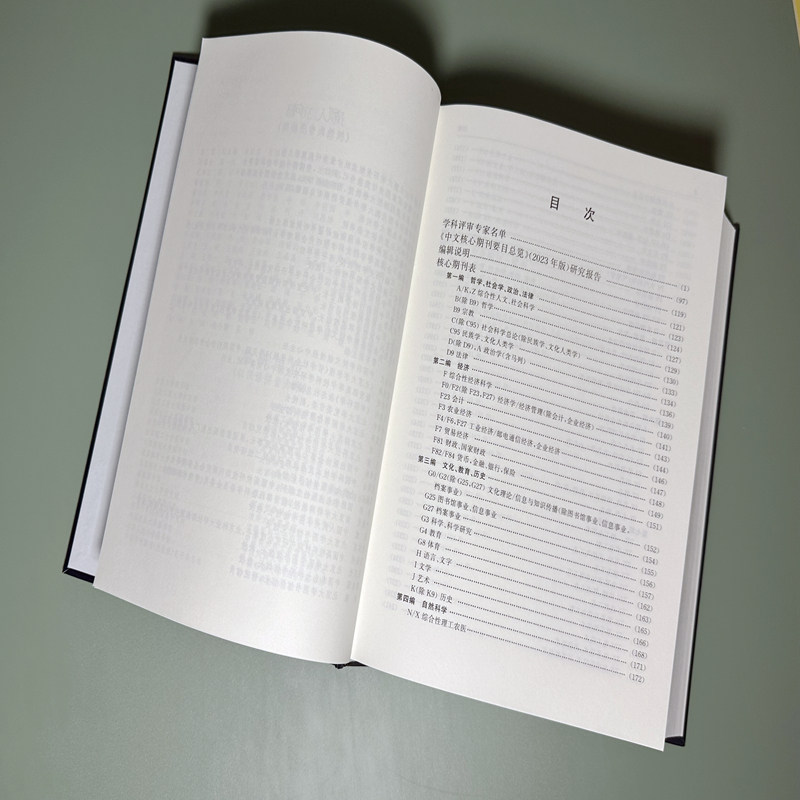 目 次
学科评审专家名单 (1)
《中文核心期刊要目总览》(2023年版)研究报告 (97)
编辑说明 (119)
核心期刊表 (121)
第一编 哲学、社会学、政治、法律 (122)
A/K,Z 综合性人文、社会科学 (124)
B(除B9) 哲学 (127)
B9 宗教 (129)
C(除C95) 社会科学总论(除民族学、文化人类学) (130)
C95 民族学、文化人类学 (133)
D(除D9)、A 政治学(含马列) (134)
D9 法律 (136)
第二编 经济 (139)
F 综合性经济科学 (140)
F0/F2(除F23,F27) 经济学/经济管理(除会计,企业经济) (141)
F23 会计 (143)
F3 农业经济 (144)
F4/F6,F27 工业经济/邮电通信经济,企业经济 (146)
F7 贸易经济 (147)
F81 财政、国家财政 (148)
F82/F84 货币,金融、银行,保险 (149)
第三编 文化、教育、历史 (151)
G0/G2(除G25,G27) 文化理论/信息与知识传播(除图书馆事业、信息事业,
档案事业) (152)
G25 图书馆事业、信息事业 (154)
G27 档案事业 (155)
G3 科学,科学研究 (156)
G4 教育 (157)
G8 体育 (162)
H 语言、文字 (163)
I 文学 (165)
J 艺术 (166)
K(除K9) 历史 (168)
第四编 自然科学 (171)
N/X 综合性理工农医 (172)